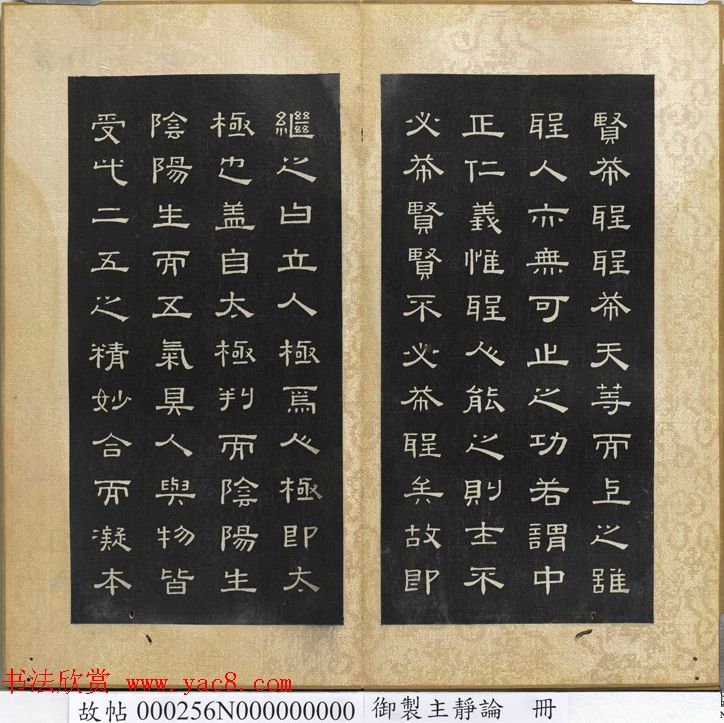 賢希聖聖希天等而上之雖
聖人亦無可止之功若謂中
正仁義惟聖人能之則士不
必希賢賢不必希聖矣故即
繼之曰立人極焉人極即太
極也盖自太極判而陰陽生
陰陽生而五氣具人與物皆
受此二五之精妙合而凝本
书法欣赏 www.yac8.com
故帖 000256N000000000 御製主靜論 冊